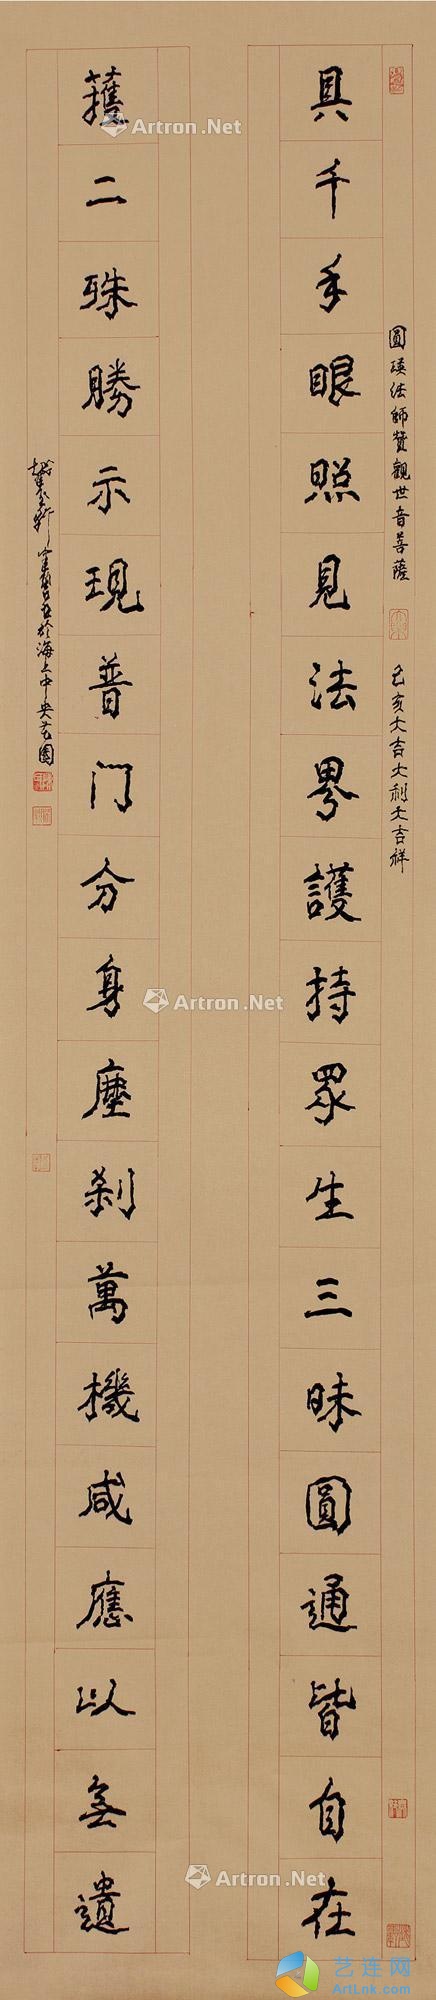 圓瑛法師贊觀世音菩薩
己亥大吉大利大吉祥
具千手眼照見法界護持眾生三昧圓通皆自在
獲二殊勝示現普門分身塵刹萬機咸應以無遺
於海上中央花園
Artron.Net
Artron.Net
Artron.Net
Artron.Net
艺连网
ArtLnk.com